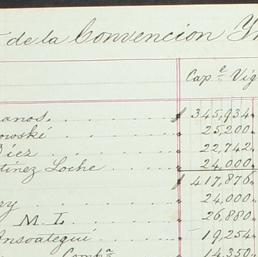 de la Convencion
Cap.e Vig
anos. $ 345,934.
owski . . . . 25,200.
Diez . . . . 22,742.
tinez Loche . . 24,000.
$ 417,876.
ry . . . . 24,000.
M. L. . . . 26,880.
Ansoategui . . . 19,254.
Compa. 14,350.